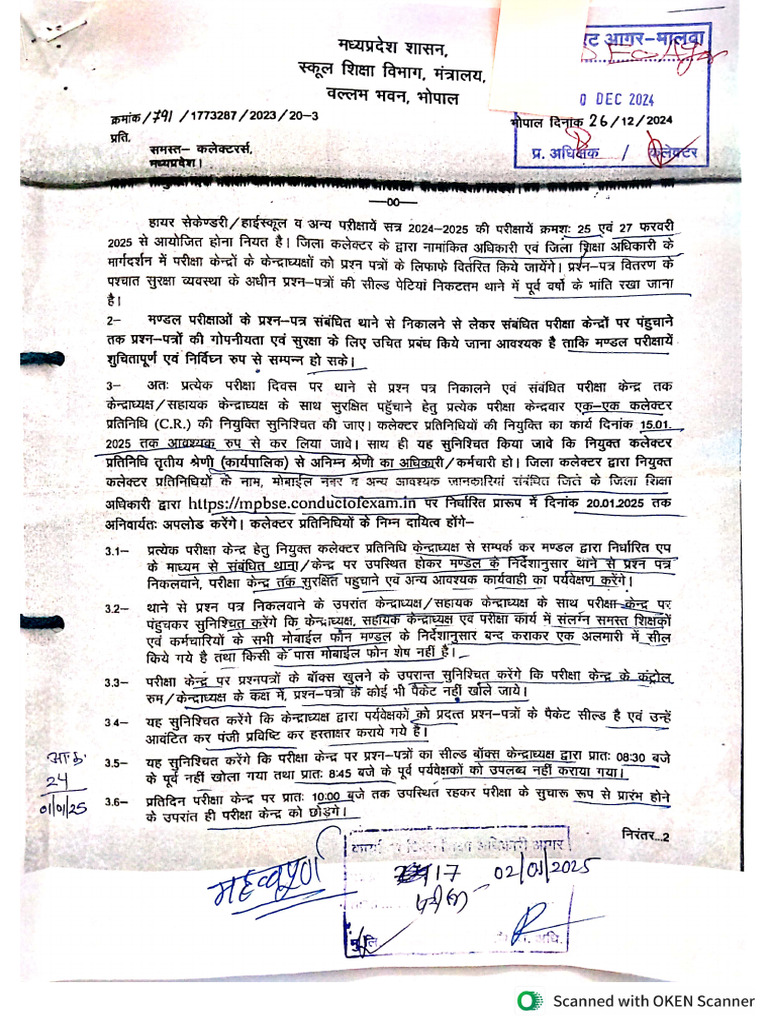 मध्यप्रदेश शासन,
स्कूल शिक्षा विभाग, मंत्रालय,
वल्लभ भवन, भोपाल
आगर-मालवा
DEC 2024
क्रमांक/791/1773287/2023/20-3
भोपाल दिनांक 26/12/2024
प्रति,
प्र. अधिक्षक / कलेक्टर
समस्त- कलेक्टर्स,
मध्यप्रदेश।
—00—
हायर सेकेण्डरी/हाईस्कूल व अन्य परीक्षायें सत्र 2024-2025 की परीक्षायें क्रमशः 25 एवं 27 फरवरी
2025 से आयोजित होना नियत है। जिला कलेक्टर के द्वारा नामांकित अधिकारी एवं जिला शिक्षा अधिकारी के
मार्गदर्शन में परीक्षा केन्द्रों के केन्द्राध्यक्षों को प्रश्न पत्रों के लिफाफे वितरित किये जायेंगे। प्रश्न-पत्र वितरण के
पश्चात सुरक्षा व्यवस्था के अधीन प्रश्न-पत्रों की सील्ड पेटियां निकटतम थाने में पूर्व वर्षो के भांति रखा जाना
है।
2- मण्डल परीक्षाओं के प्रश्न-पत्र संबंधित थाने से निकालने से लेकर संबंधित परीक्षा केन्द्रों पर पंहुचाने
तक प्रश्न-पत्रों की गोपनीयता एवं सुरक्षा के लिए उचित प्रबंध किये जाना आवश्यक है ताकि मण्डल परीक्षायें
शुचितापूर्ण एवं निर्विघ्न रुप से सम्पन्न हो सके।
3- अतः प्रत्येक परीक्षा दिवस पर थाने से प्रश्न पत्र निकालने एवं संबंधित परीक्षा केन्द्र तक
केन्द्राध्यक्ष/सहायक केन्द्राध्यक्ष के साथ सुरक्षित पहुँचाने हेतु प्रत्येक परीक्षा केन्द्रवार एक-एक कलेक्टर
प्रतिनिधि (C.R.) की नियुक्ति सुनिश्चित की जाए। कलेक्टर प्रतिनिधियों की नियुक्ति का कार्य दिनांक 15.01.
2025 तक आवश्यक रुप से कर लिया जावे। साथ ही यह सुनिश्चित किया जावे कि नियुक्त कलेक्टर
प्रतिनिधि तृतीय श्रेणी (कार्यपालिक) से अनिम्न श्रेणी का अधिकारी/कर्मचारी हो। जिला कलेक्टर द्वारा नियुक्त
कलेक्टर प्रतिनिधियों के नाम, मोबाईल नंबर व अन्य आवश्यक जानकारियां संबंधित जिले के जिला शिक्षा
अधिकारी द्वारा https://mpbse.conductofexam.in पर निर्धारित प्रारूप में दिनांक 20.01.2025 तक
अनिवार्यतः अपलोड करेंगे। कलेक्टर प्रतिनिधियों के निम्न दायित्व होंगे-
3.1- प्रत्येक परीक्षा केन्द्र हेतु नियुक्त कलेक्टर प्रतिनिधि केन्द्राध्यक्ष से सम्पर्क कर मण्डल द्वारा निर्धारित एप
के माध्यम से संबंधित थाना/केन्द्र पर उपस्थित होकर मण्डल के निर्देशानुसार थाने से प्रश्न पत्र
निकलवाने, परीक्षा केन्द्र तक सुरक्षित पहुचाने एवं अन्य आवश्यक कार्यवाही का पर्यवेक्षण करेंगे।
3.2- थाने से प्रश्न पत्र निकलवाने के उपरांत केन्द्राध्यक्ष/सहायक केन्द्राध्यक्ष के साथ परीक्षा केन्द्र पर
पंहुचकर सुनिश्चित करेंगे कि केन्द्राध्यक्ष, सहायक केन्द्राध्यक्ष एवं परीक्षा कार्य में संलग्न समस्त शिक्षकों
एवं कर्मचारियों के सभी मोबाईल फोन मण्डल के निर्देशानुसार बन्द कराकर एक अलमारी में सील
किये गये है तथा किसी के पास मोबाईल फोन शेष नहीं है।
3.3- परीक्षा केन्द्र पर प्रश्नपत्रों के बॉक्स खुलने के उपरान्त सुनिश्चित करेंगे कि परीक्षा केन्द्र के कंट्रोल
रुम/केन्द्राध्यक्ष के कक्ष में, प्रश्न-पत्रों के कोई भी पैकेट नहीं खोले जाये।
3.4- यह सुनिश्चित करेंगे कि केन्द्राध्यक्ष द्वारा पर्यवेक्षकों को प्रदत्त प्रश्न-पत्रों के पैकेट सील्ड है एवं उन्हें
आवंटित कर पंजी प्रविष्टि कर हस्ताक्षर कराये गये है।
3.5- यह सुनिश्चित करेंगे कि परीक्षा केन्द्र पर प्रश्न-पत्रों का सील्ड बॉक्स केन्द्राध्यक्ष द्वारा प्रातः 08:30 बजे
के पूर्व नहीं खोला गया तथा प्रातः 8:45 बजे के पूर्व पर्यवेक्षकों को उपलब्ध नहीं कराया गया।
3.6- प्रतिदिन परीक्षा केन्द्र पर प्रातः 10:00 बजे तक उपस्थित रहकर परीक्षा के सुचारू रूप से प्रारंभ होने
के उपरांत ही परीक्षा केन्द्र को छोड़ेंगे।
आ.क.
24
01/01/25
निरंतर..2
महत्वपूर्ण
शिक्षा अधिकारी आगर
17 02/01/2025
Scanned with OKEN Scanner